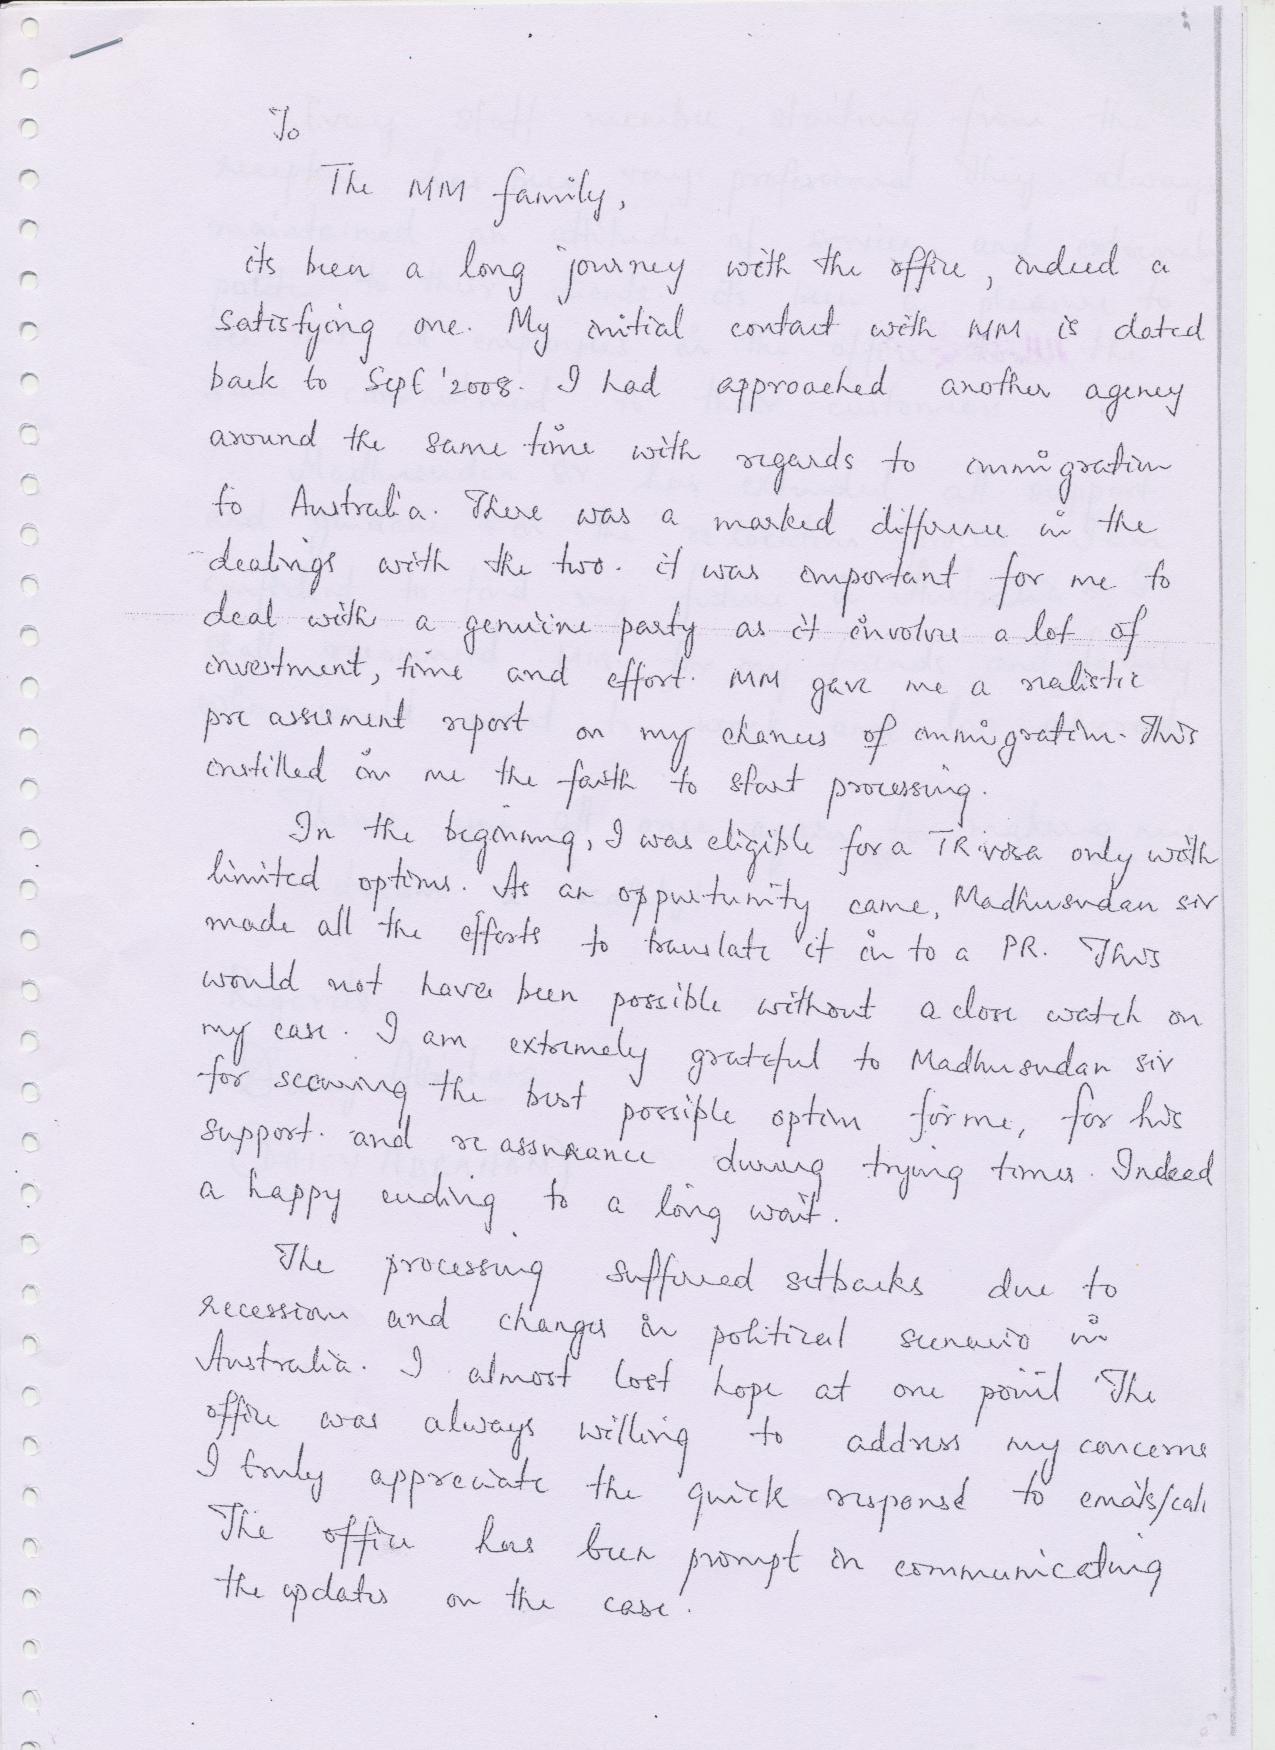 To
The MM family,
its been a long journey with the office, indeed a
satisfying one. My initial contact with MM is dated
back to Sept '2008. I had approached another agency
around the same time with regards to immigration
to Australia. There was a marked difference in the
dealings with the two. it was important for me to
deal with a genuine party as it involve a lot of
investment, time and effort. MM gave me a realistic
pre assesment report on my chances of immigration. This
instilled in me the faith to start processing.
In the begining, I was eligible for a TR visa only with
limited options. As an oppurtunity came, Madhusudan sir
made all the efforts to translate it in to a PR. This
would not have been possible without a close watch on
my case. I am extremely grateful to Madhusudan sir
for securing the best possible option for me, for his
support. and re assurance during trying times. Indeed
a happy ending to a long wait.
The processing suffered setbacks due to
recession and changes in political scenario in
Australia. I almost lost hope at one point The
office was always willing to address my concerns
I truly appreciate the quick response to emails/call
The office has been prompt in communicating
the updates on the case.